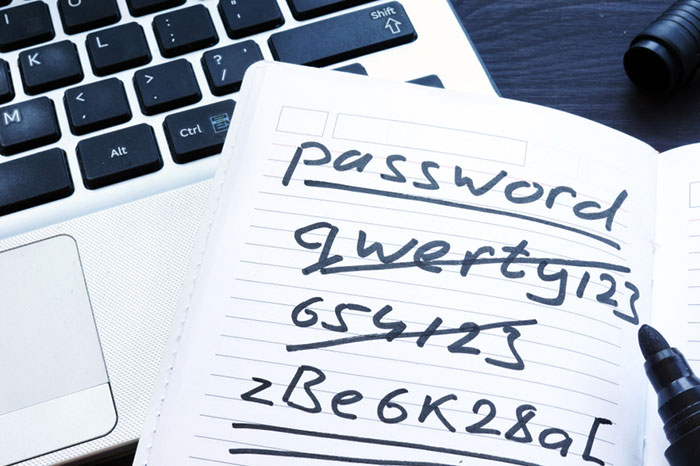 I O
K L : ; " ' Shift
M < , > . ? /
Alt Ctrl
password
qwerty123
654123
zBe6K28a[